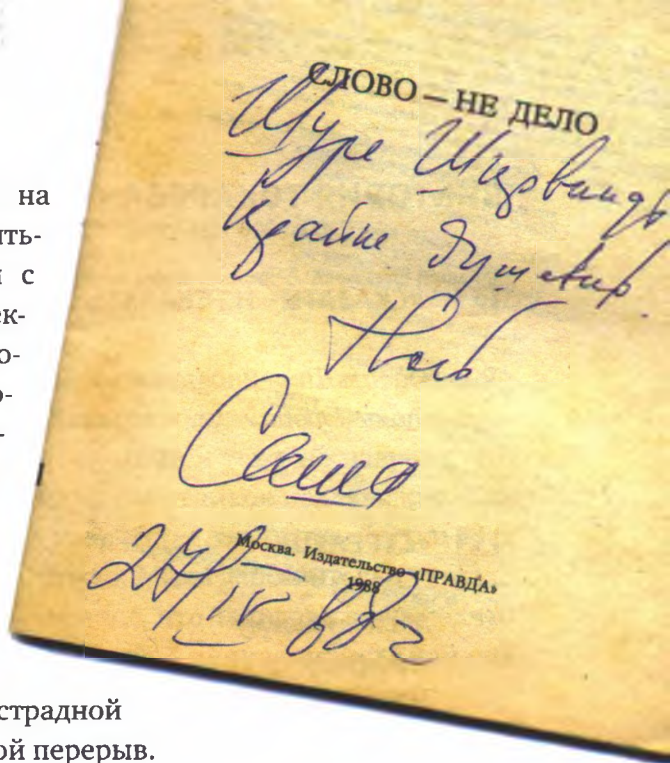 на
ить-
с
ек-
о-
о-
-
страдной
ой перерыв.
СЛОВО — НЕ ДЕЛО
Шуре Ширвиндту
крайне душевно.
Твой
Саша
Москва. Издательство «ПРАВДА»
1988
27/IV 88 г